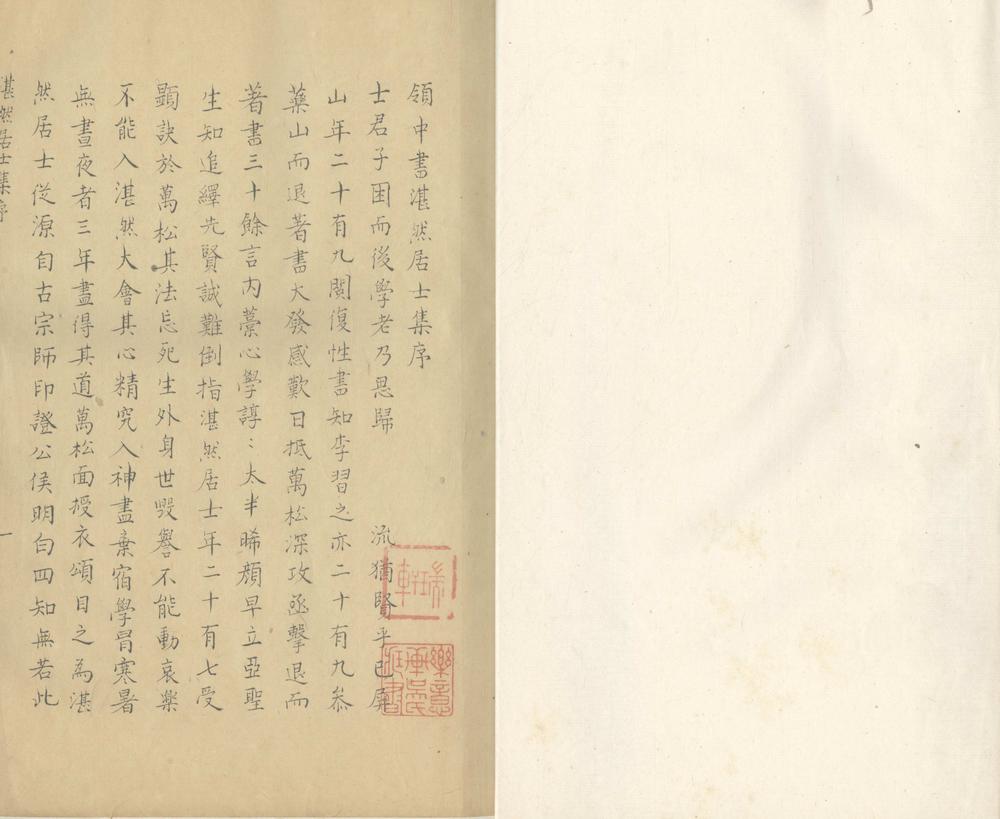 領中書湛然居士集序
士君子困而後學老乃思歸 流猶賢乎已屏
山年二十有九閱復性書知李習之亦二十有九叅
藥山而退著書大發感歎日抵萬松深攻亟擊退而
著書三十餘言内藁心學諄〻太半晞顔早立亞聖
生知追繹先賢誠難倒指湛然居士年二十有七受
顯訣於萬松其法忘死生外身世毁譽不能動哀樂
不能入湛然大會其心精究入神盡棄宿學冒寒暑
無晝夜者三年盡得其道萬松面授衣頌目之為湛
然居士從源自古宗師印證公侯明白四知無若此
湛然居士集序
一
樂意軒吳氏